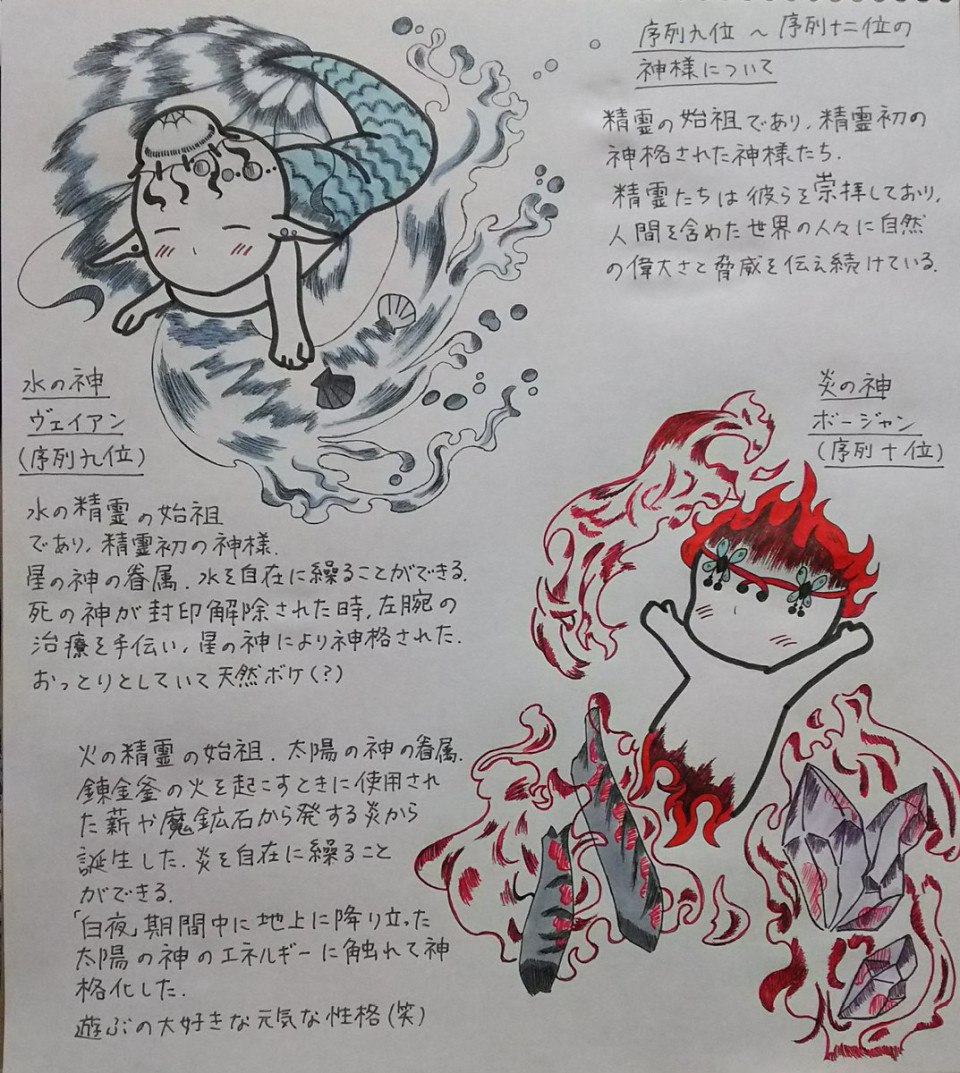 序列九位～序列十二位の
神様について
精霊の始祖であり、精霊初の
神格された神様たち.
精霊たちは彼らを崇拝しており、
人間を含めた世界の人々に自然
の偉大さと脅威を伝え続けている.
水の神
ヴェイアン
(序列九位)
水の精霊の始祖
であり、精霊初の神様.
星の神の眷属.水を自在に繰ることができる.
死の神が封印解除された時、左腕の
治療を手伝い、星の神により神格された.
おっとりとしていて天然ボケ(?)
炎の神
ボージャン
(序列十位)
火の精霊の始祖.太陽の神の眷属.
錬金釜の火を起こすときに使用され
た薪や魔鉱石から発する炎から
誕生した.炎を自在に繰ること
ができる.
「白夜」期間中に地上に降り立った
太陽の神のエネルギーに触れて神
格化した.
遊ぶの大好きな元気な性格(笑)